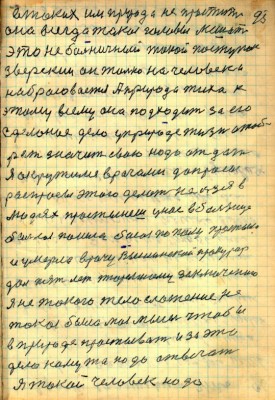 98
таких им природа не простит
она всегда такая голова мешает
это не больничный такой поступок
зверский он только на человека
набрасовается А природа тиха к
этому всему она подходит за его
сделоное дело у природе жизн
рет значит свою надо отдат
Я окружился врачами допросы
распросы этого делат нельзя в
людях простынеш у нас в болнице
болная пошла босая по полу простыла
и умерла врачу Вышинский прокурор
дал пят лет тюремному заключению
Я не такого телосложение не
такая была моя мысл чтобы
в природе простыват и за это
дело кому та надо отвечат
Я такой человек надо